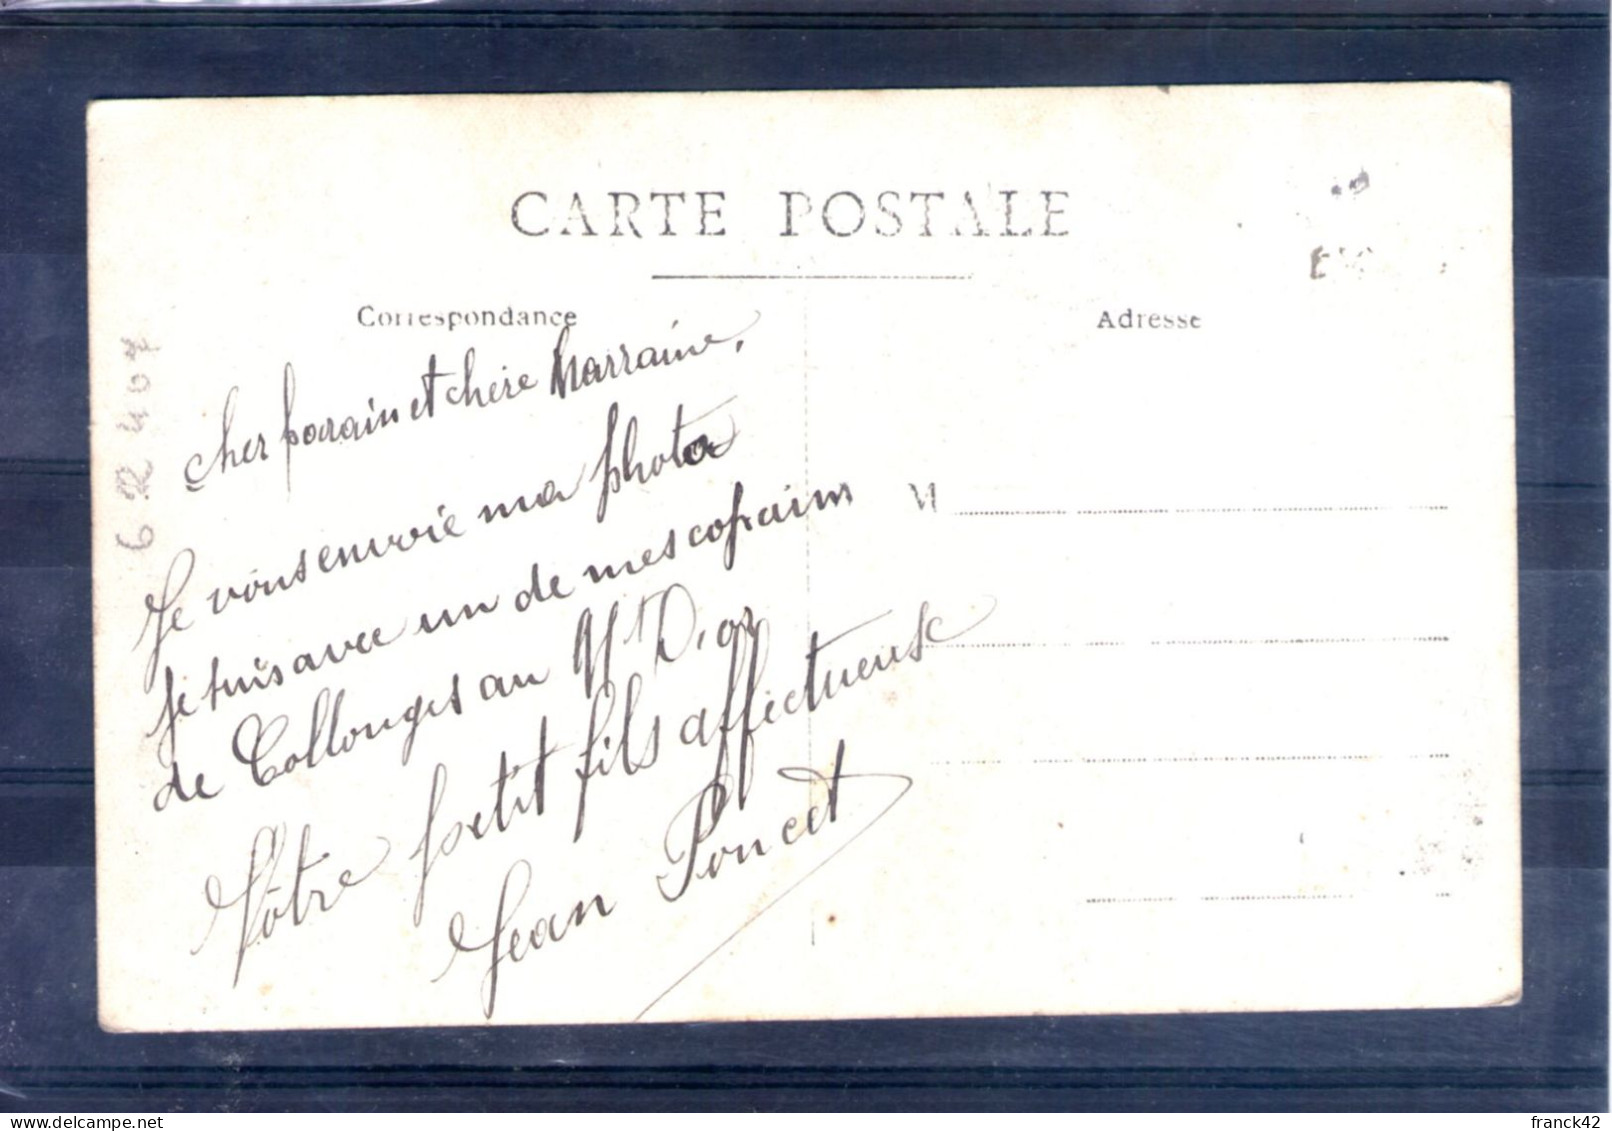 CARTE POSTALE
Correspondance
Adresse
cher parain et chère Marraine,
Je vous envoie ma photo
je suis avec un de mes copains
de Collonges au Mt D'or
Vôtre petit fils affectueux
Jean Poncet
M
franck42